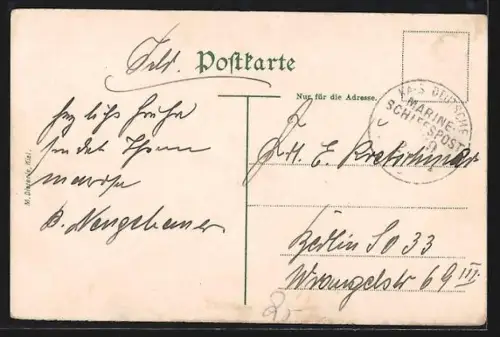 Feld. Postkarte
Nur für die Adresse.
KAIS. DEUTSCHE
MARINE-
SCHIFFSPOST
herzliche Grüße
sendet Ihnen
B. Neugebauer
M. Dieterle, Kiel.
Frl. E. Kretschmer
Berlin SO 33
Wrangelstr 69 III
25